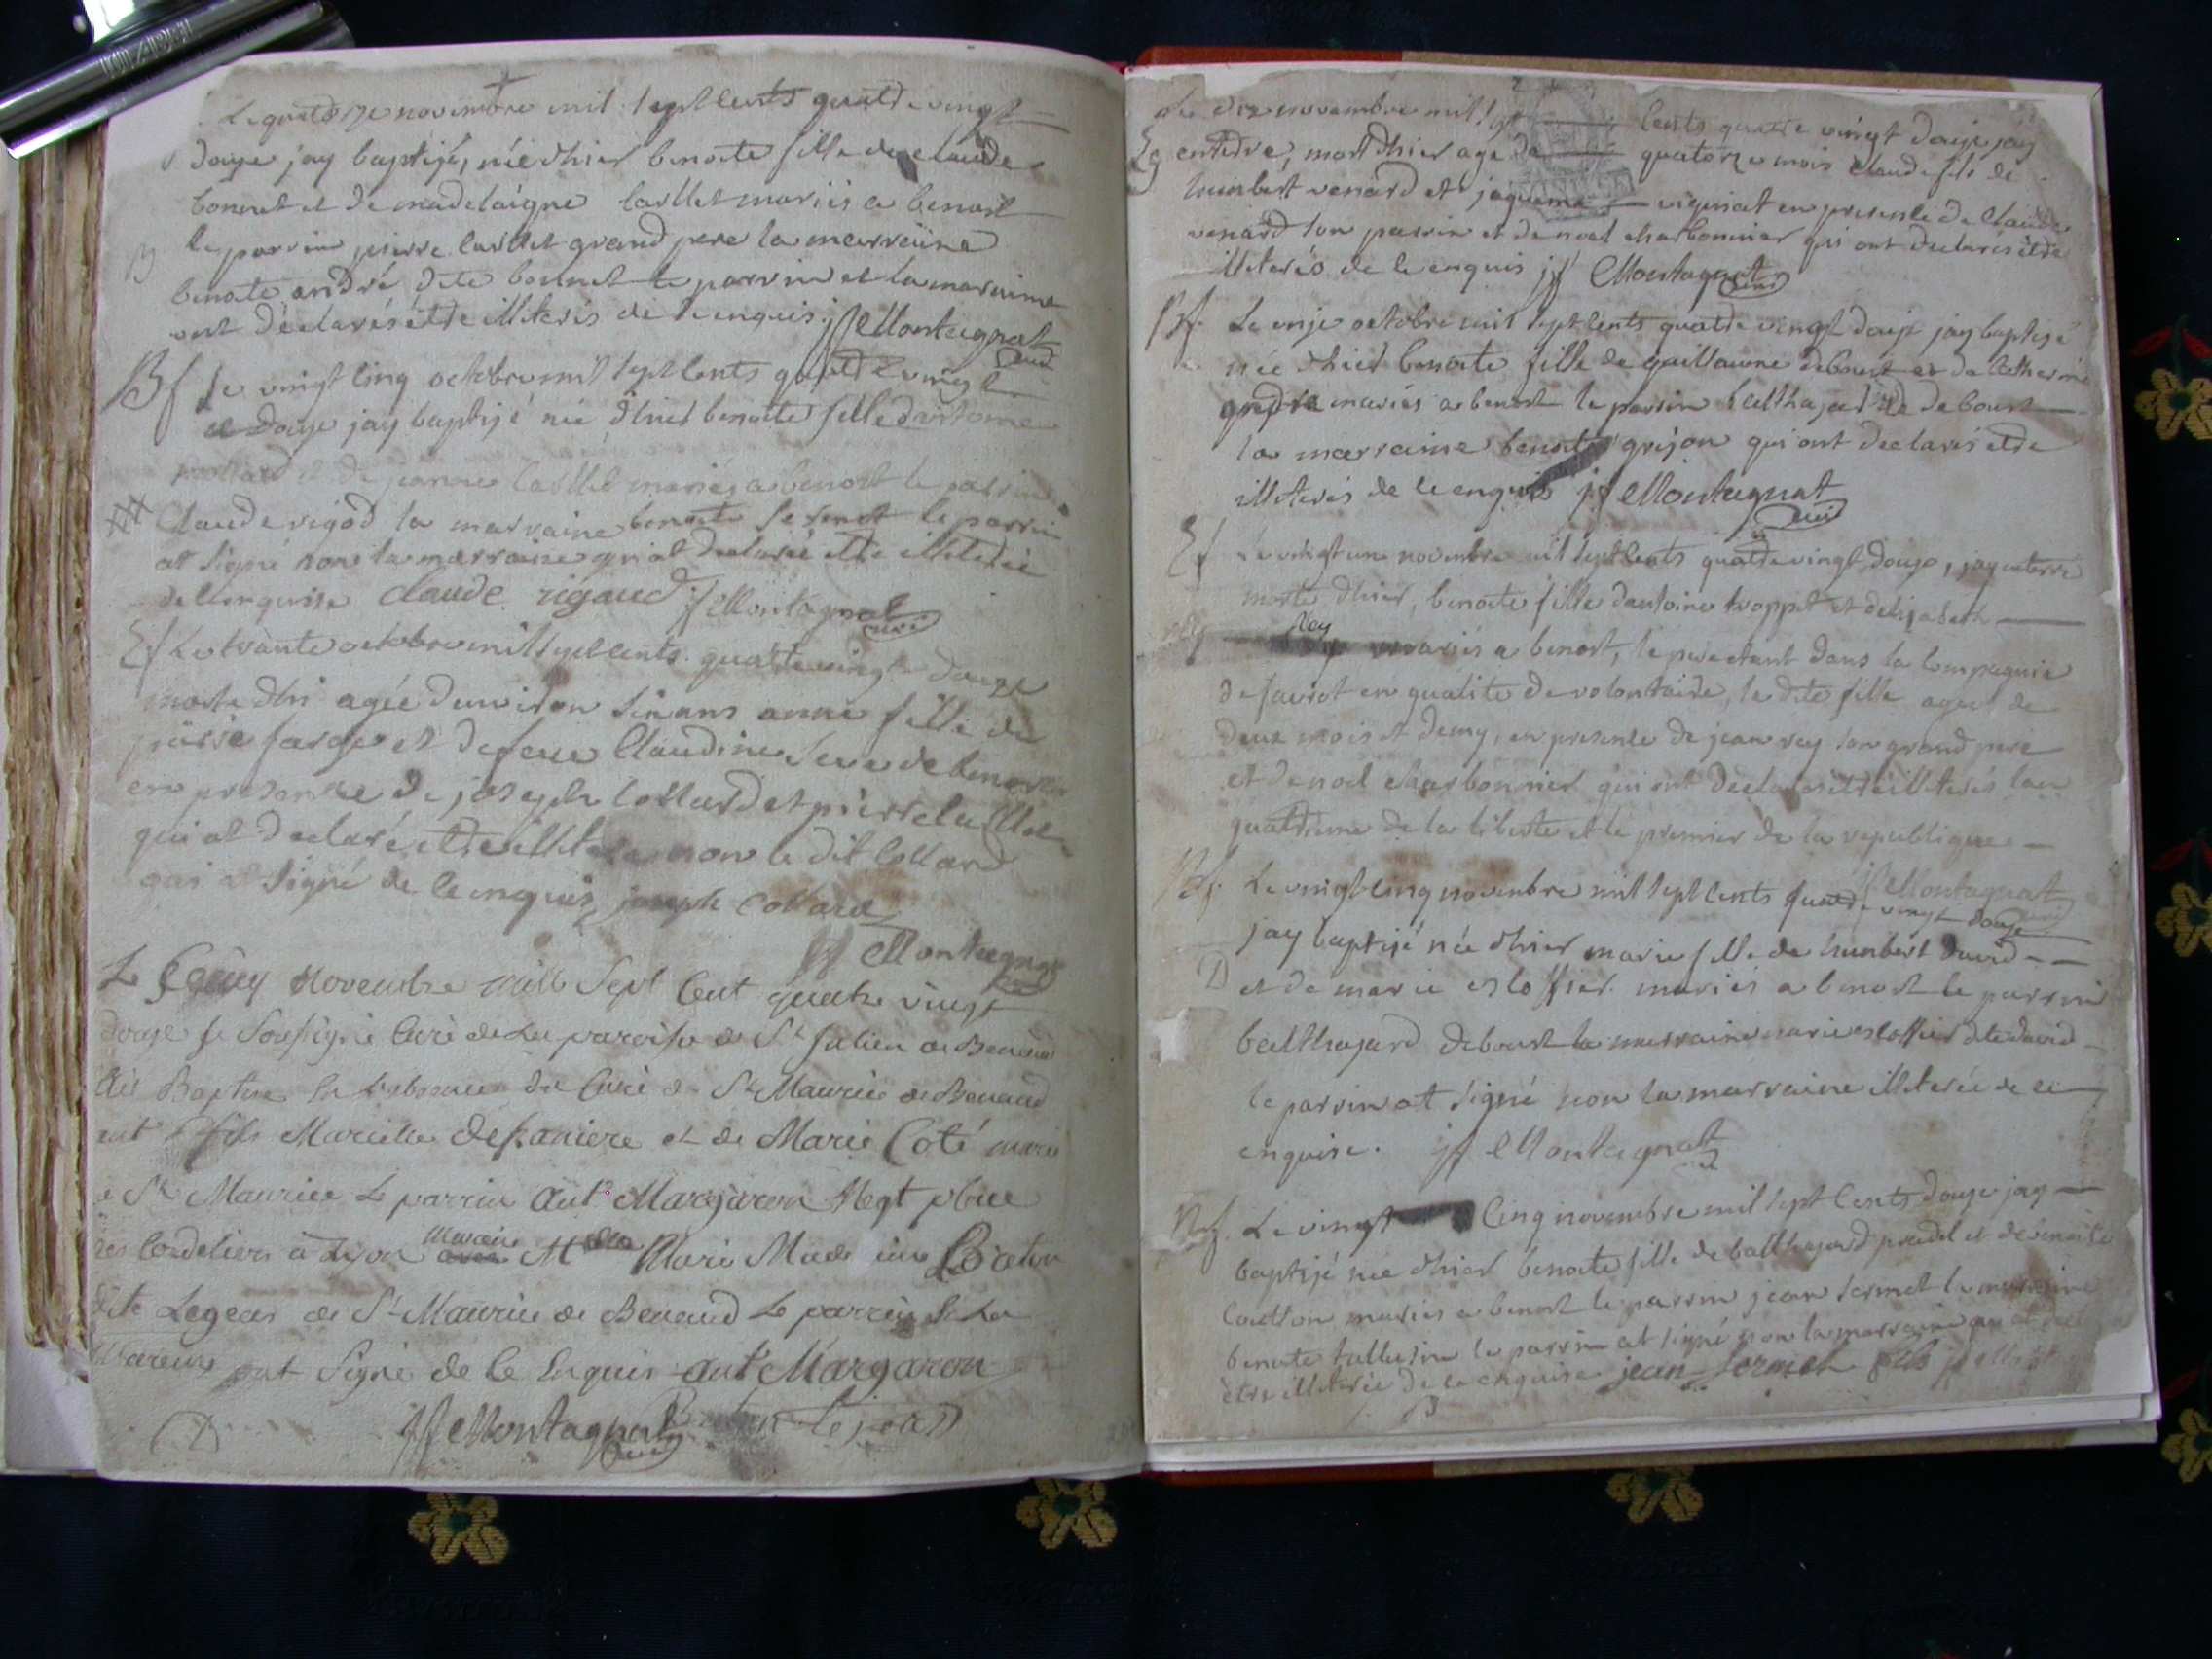 Le quatorze novembre mil sept cents quatre vingt
douze jay baptisé, née dhier benoite fille de claude
bonnet et de madelaigne caillet mariés a benost
B le parrin pierre caillet grand pere la marraine
benoite andré dite bonnet le parrin et la maraine
ont déclarés etre illiterés de ce enquis. jf Montagnat
curé
Bf Le vingt cinq octobre mil sept cents quatre vingt
et douze jay baptisé née dhier benoite fille dantoine
et de jeanne caillet mariés a benost le parrin
claude rigod la marraine benoite sermet le parrin
at signé non la marraine qui at declaré etre illiterée
de ce enquise claude rigaud jf Montagnat
curé
Ef Le trante octobre mil sept cents quatre vingt douze
morte dhi agée denviron six ans anne fille de
pierre farge et de feue Claudine seve de benost
en presence de joseph collard et pierre caillet
qui at declaré etre illiteré non le dit collard
qui at signé de ce enquis joseph collard
jf Montagnat
curé
Le novembre mille Sept Cent quatre vingt
douze je Soussigné Curé de La paroisse de St Julien de
Baptisé En L'absence du Curé de St Maurice de
fils Marcelin de et de Marie Coté
St Maurice Le parrin Ant Margaron Negt place
des Cordeliers à Lyon Maraine Mlle Marie Breton
dite Lejean de St Maurice de Le parrin & La
Mareine ont Signé de Ce Enquis ant Margaron
jf Montagnat Breton lejean
curé
Le dix novembre mil sept cents quatre vingt douze jay
Eg enterré, mort dhier agé de quatorze mois claude fils de
humbert venard et jaqueme viginat en presence de claude
venard son parrin et de noel charbonnier qui ont declarés etre
illiterés de ce enquis jf Montagnat
curé
Bf. Le onze octobre mil sept cents quatre vingt douze jay baptisé
née dhier benoite fille de guillaume deboust et de catherine
mariés a benost le parrin balthazard de boust
la marraine benoite grizon qui ont declarés etre
illiterés de ce enquis jf Montagnat
curé
Ef Le vingt un novembre mil sept cents quatre vingt douze, jay enterré
morte dhier, benoite fille dantoine troppet et delizabeth
Rey mariés a benost, le pere etant dans la compagnie
de en qualite de volontaire, la dite fille agée de
deux mois et demy, en presence de jean rey son grand pere
et de noel charbonnier qui ont declarés etre illiterés lan
quatrieme de la liberte et le premier de la republique
jf Montagnat
curé
Bf. Le vingt cinq novembre mil sept cents quatre vingt douze
jay baptisé née dhier marie fille de humbert david
D et de marie esloffier mariés a benost le parrin
balthazard deboust la marraine marie esloffier dite david
le parrin at signé non la marraine illiterée de ce
enquise. jf Montagnat
Bf. Le vingt cinq novembre mil sept cents douze jay
baptisé née dhier benoite fille de balthazard pradel et de benoite
coutton mariés a benost le parrin jean sermet la marraine
benoite le parrin at signé non la marraine qui at
etre illiterée de ce enquise jean sermet fils